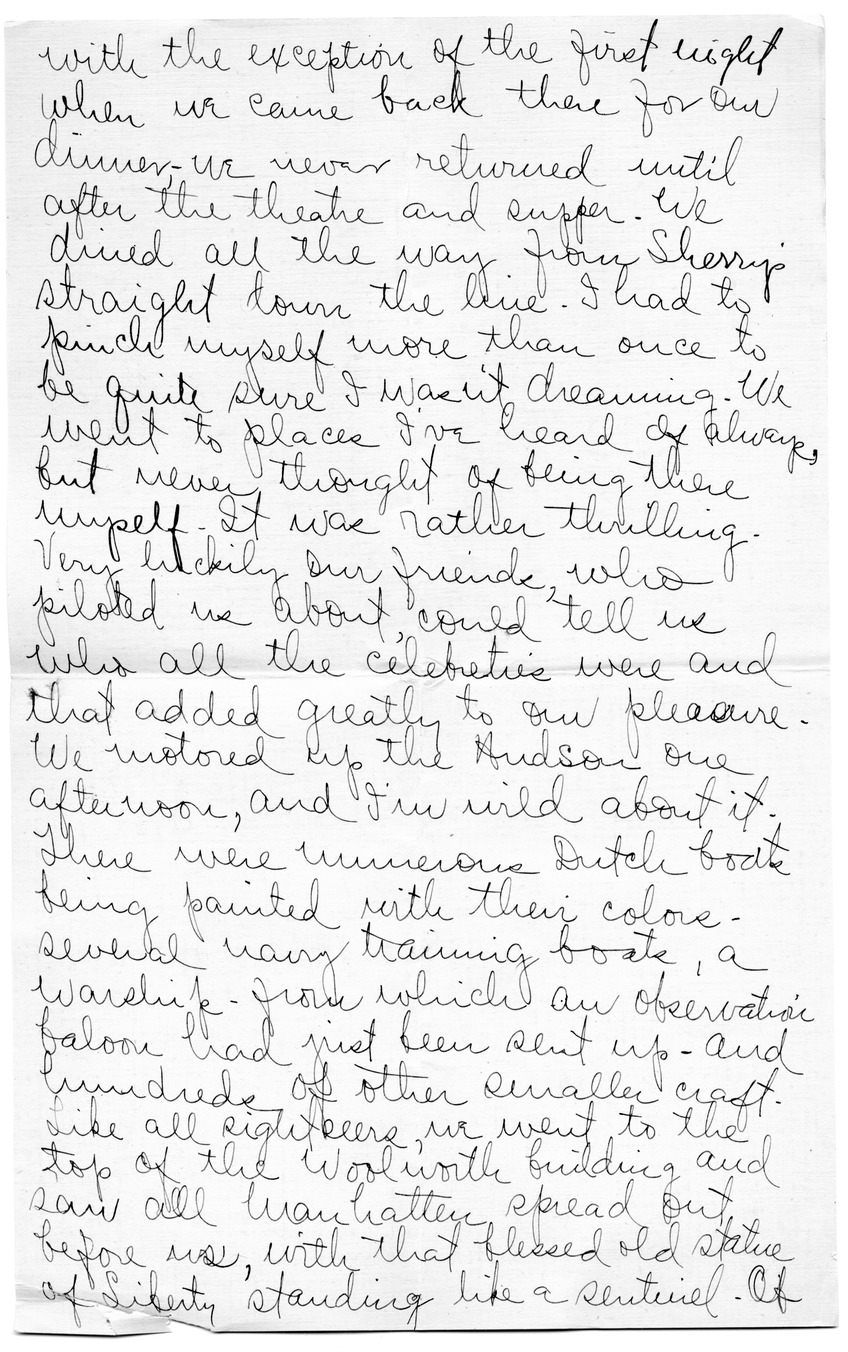 with the exception of the first night
when we came back there for our
dinner, - we never returned until
after the theatre and supper. We
dined all the way from Sherry's
straight down the line. I had to
pinch myself more than once to
be quite sure I wasn't dreaming. We
went to places I've heard of always,
but never thought of being there
myself. It was rather thrilling.
Very luckily our friends, who
piloted us about, could tell us
who all the celebreties were and
that added greatly to our pleasure.
We motored up the Hudson one
afternoon, and I'm wild about it.
There were numerous Dutch boats
being painted with their colors -
several navy training boats, a
warship - from which an observation
baloon had just been sent up - and
hundreds of other smaller craft.
Like all sightseers, we went to the
top of the Woolworth building and
saw all Manhatten spread out
before us, with that blessed old statue
of Liberty standing like a sentinel. Of